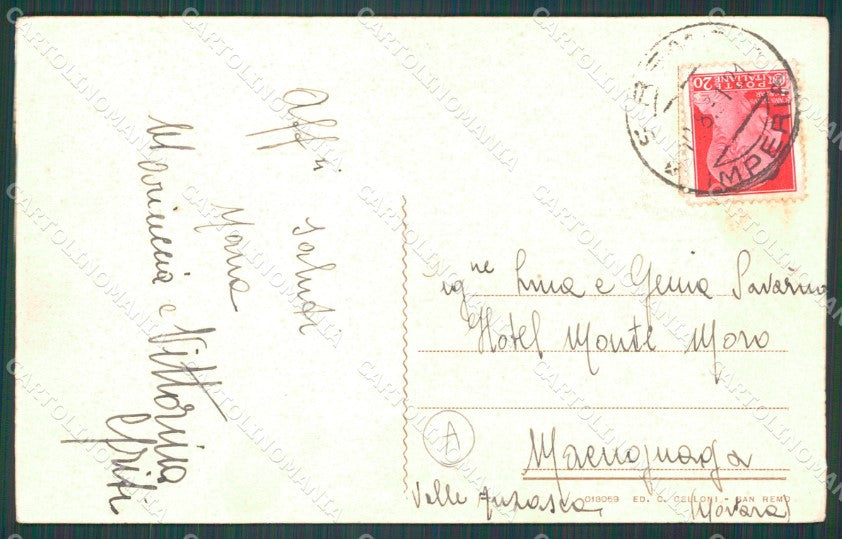 Aff.ti saluti
Maria
Mariuccia e Vittorina
POSTE ITALIANE
20
IMPERIA
Sig.ne Lina e Genia Savarino
Hotel Monte Moro
A
Macugnaga
Valle Anzasca (Novara)
013059 ED. C. CELLONI - SAN REMO
CARTOLINOMANIA